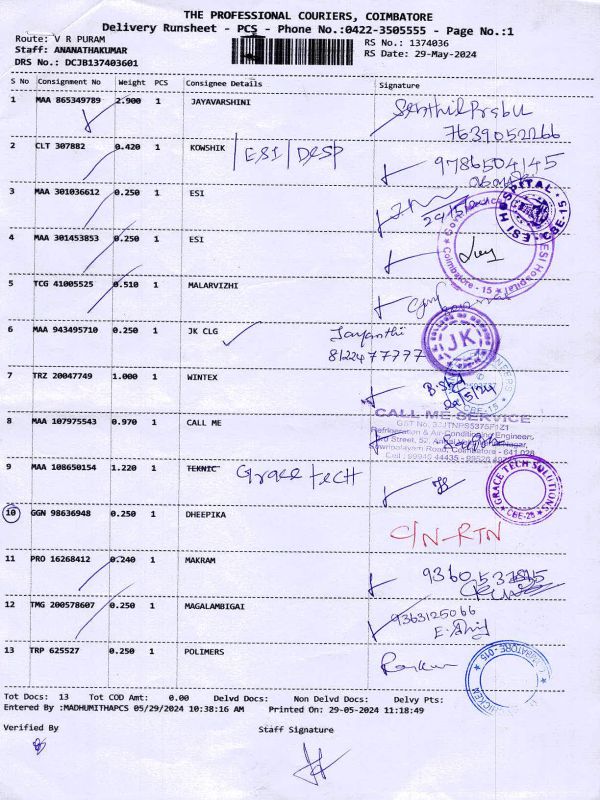 THE PROFESSIONAL COURIERS, COIMBATORE
Delivery Runsheet - PCS - Phone No.:0422-3505555 - Page No.:1
Route: V R PURAM
RS No.: 1374036
Staff: ANANATHAKUMAR
RS Date: 29-May-2024
DRS No.: DCJB137403601
S No Consignment No Weight PCS Consignee Details Signature
1 MAA 865349789 2.900 1 JAYAVARSHINI Senthil Prabu
7639052266
2 CLT 307882 0.420 1 KOWSHIK |ESI|DESP 9786504145
3 MAA 301036612 0.250 1 ESI
ESI HOSPITAL CBE-15
4 MAA 301453853 0.250 1 ESI
ESI Hospital Coimbatore - 15
5 TCG 41005525 0.510 1 MALARVIZHI
6 MAA 943495710 0.250 1 JK CLG Jayanthi
8122477777
JK
7 TRZ 20047749 1.000 1 WINTEX
CBE-15
8 MAA 107975543 0.970 1 CALL ME
CALL ME SERVICE
Refrigeration & Air-Conditioning Engineer,
Coimbatore - 641 028
9 MAA 108650154 1.220 1 TEKNIC Grace tech
GRACE TECH SOLUTIONS CBE-28
10 GGN 98636948 0.250 1 DHEEPIKA C/N-RTN
11 PRO 16268412 0.240 1 MAKRAM
12 TMG 200578607 0.250 1 MAGALAMBIGAI 9363125066
13 TRP 625527 0.250 1 POLIMERS
COIMBATORE-015
Tot Docs: 13 Tot COD Amt: 0.00 Delvd Docs: Non Delvd Docs: Delvy Pts:
Entered By :MADHUMITHAPCS 05/29/2024 10:38:16 AM Printed On: 29-05-2024 11:18:49
Verified By Staff Signature